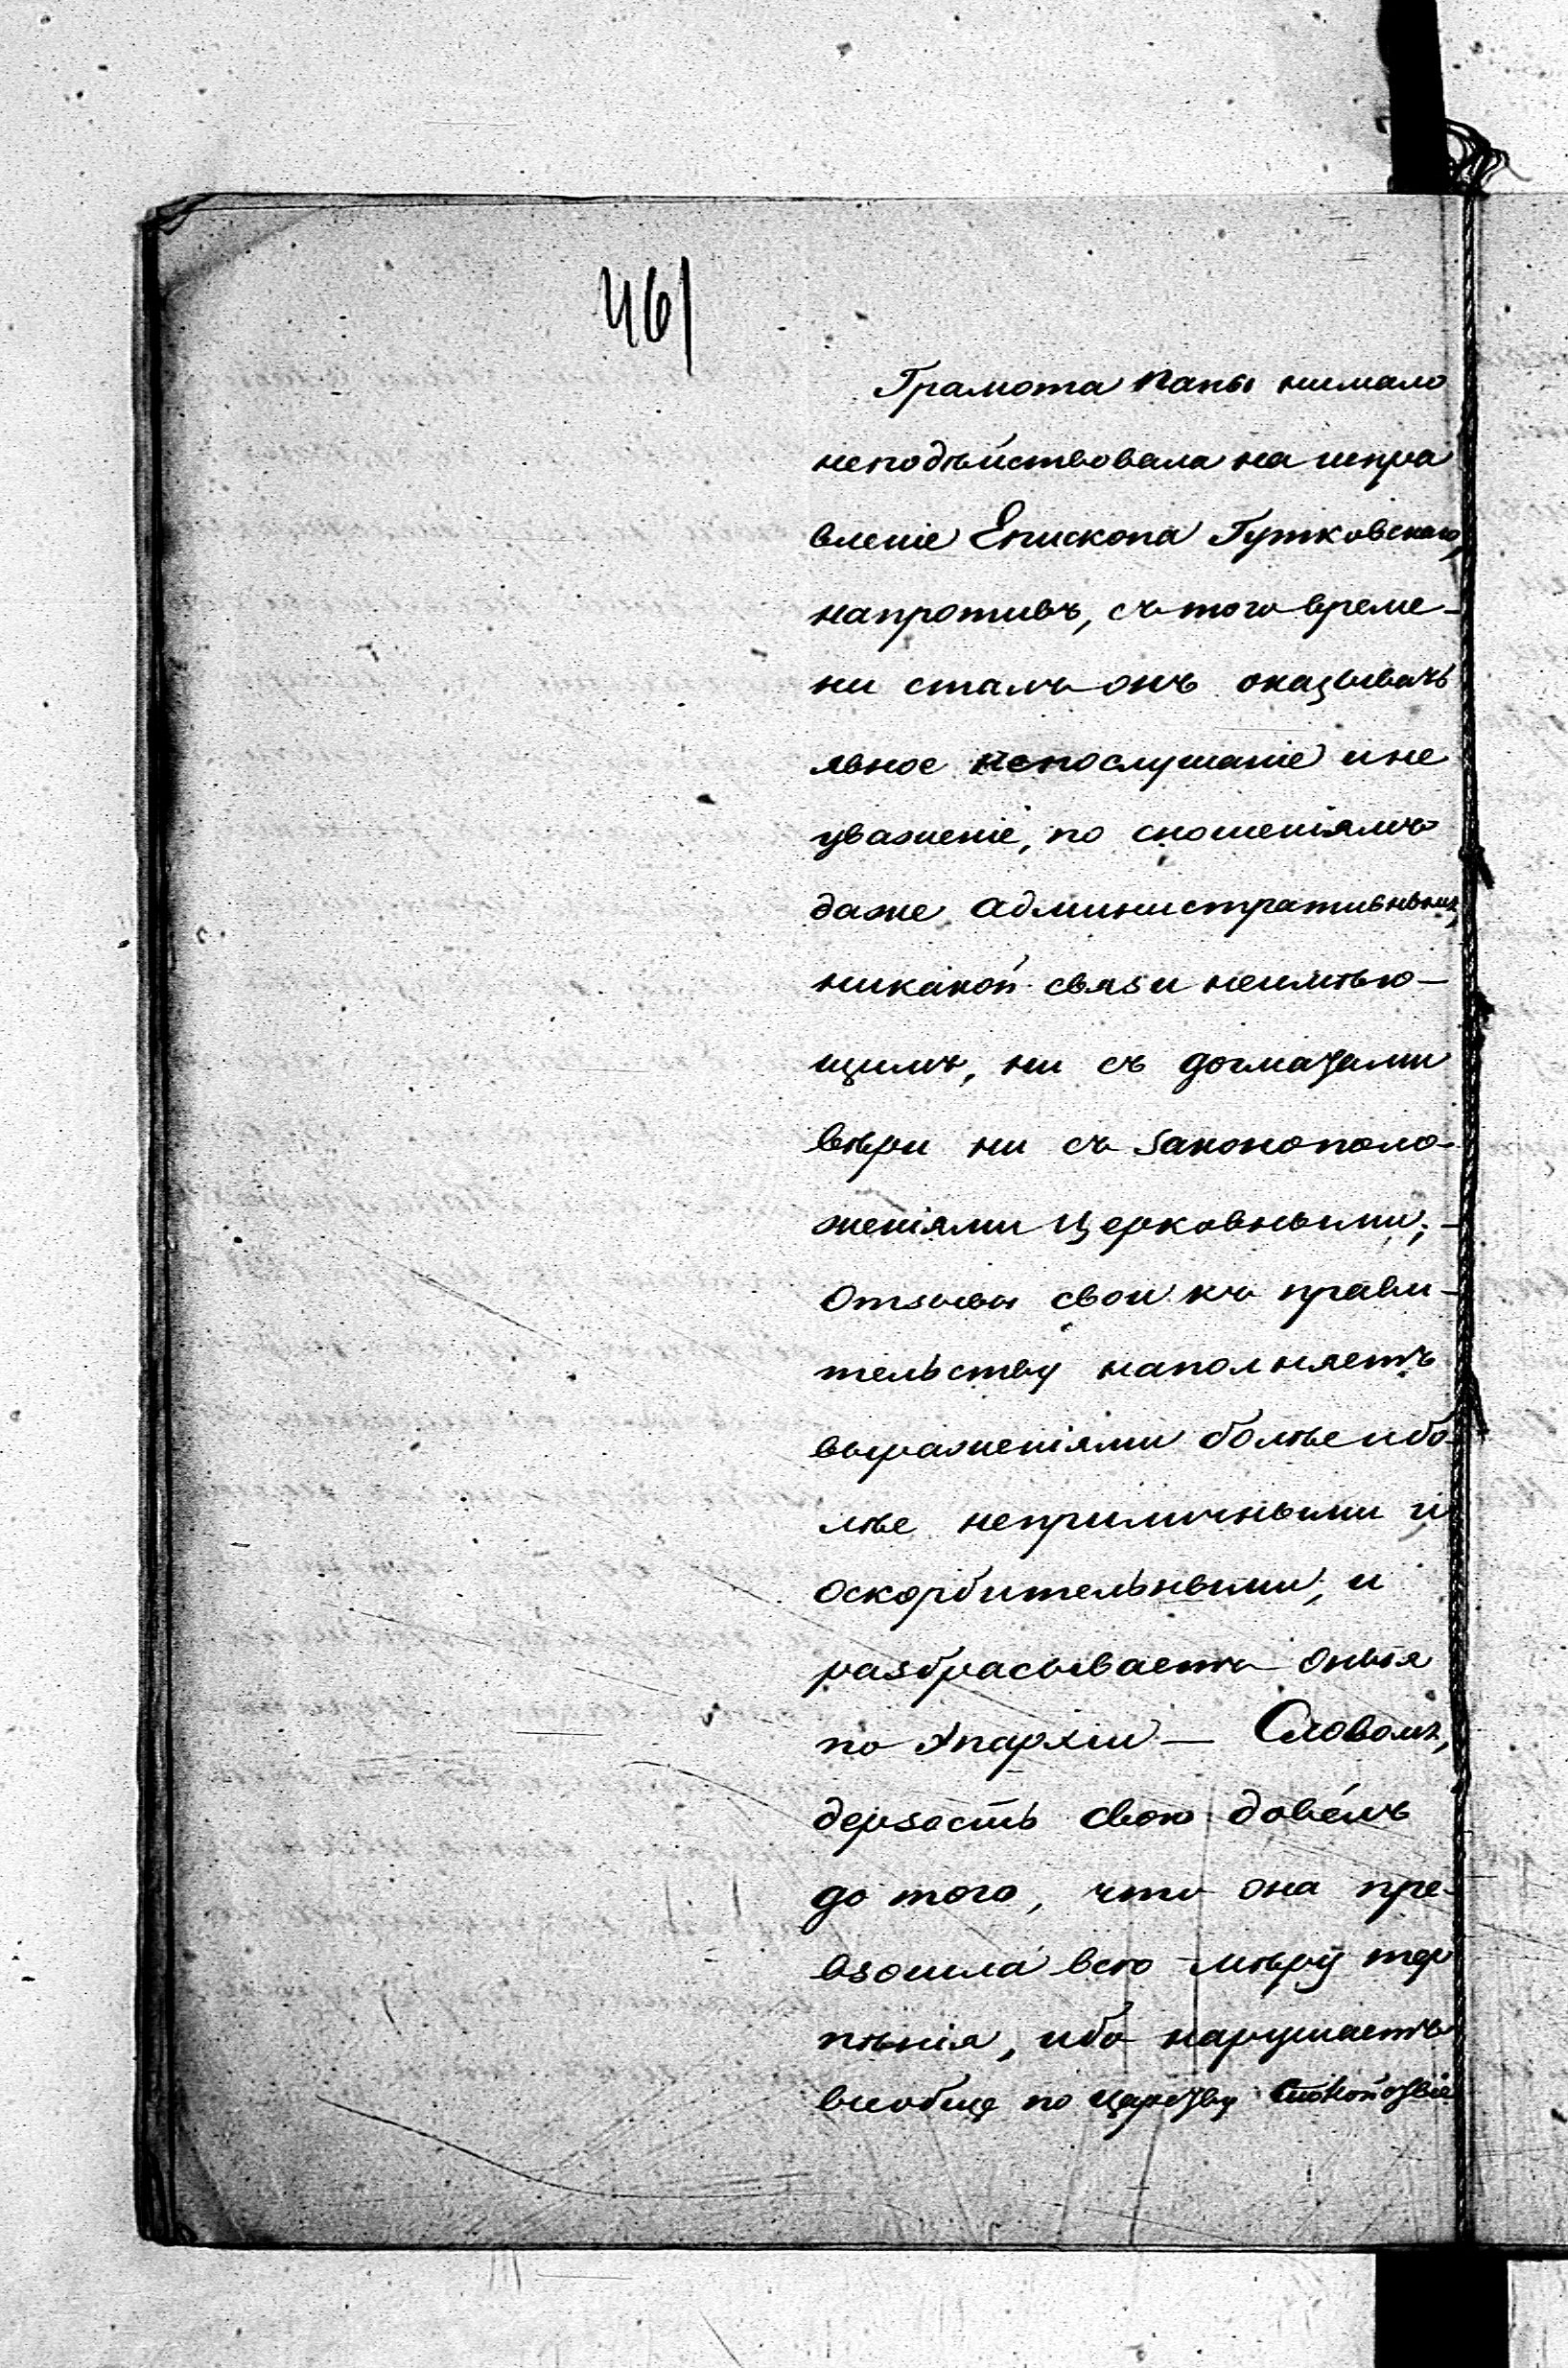 461
Грамота Папы нимало
неподѣйствовала на испра
вленіе Епископа Гутковскаго,
напротивъ, съ того време-
ни сталъ онъ оказывать
явное непослушаніе и не
уваженіе, по сношеніямъ
даже административнымъ,
никакой связи неимѣю-
щимъ, ни съ догматами
вѣры ни съ законополо-
женіями Церковными; -
Отзывы свои къ прави-
тельству наполняетъ
выраженіями болѣе и бо-
лѣе неприличными и
оскорбительными; и
разбрасываетъ оныя
по Эпархіи — Словомъ,
дерзость свою довелъ
до того, что она пре-
взошла всю мѣру тер
пѣнія, ибо нарушаетъ
вообще по Царству Спокойствіе